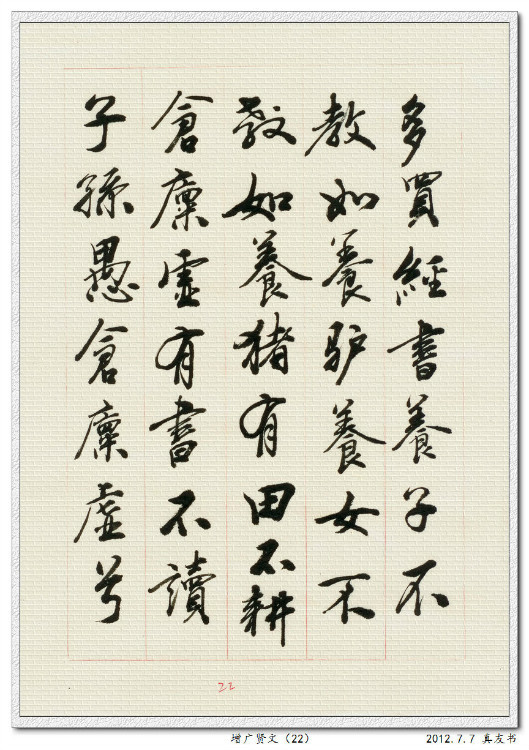 多買經書養子不
教如養驴養女不
教如養猪有田不耕
倉廩虛有書不讀
子孫愚倉廩虛兮
22
增广贤文（22）
2012.7.7 真友书